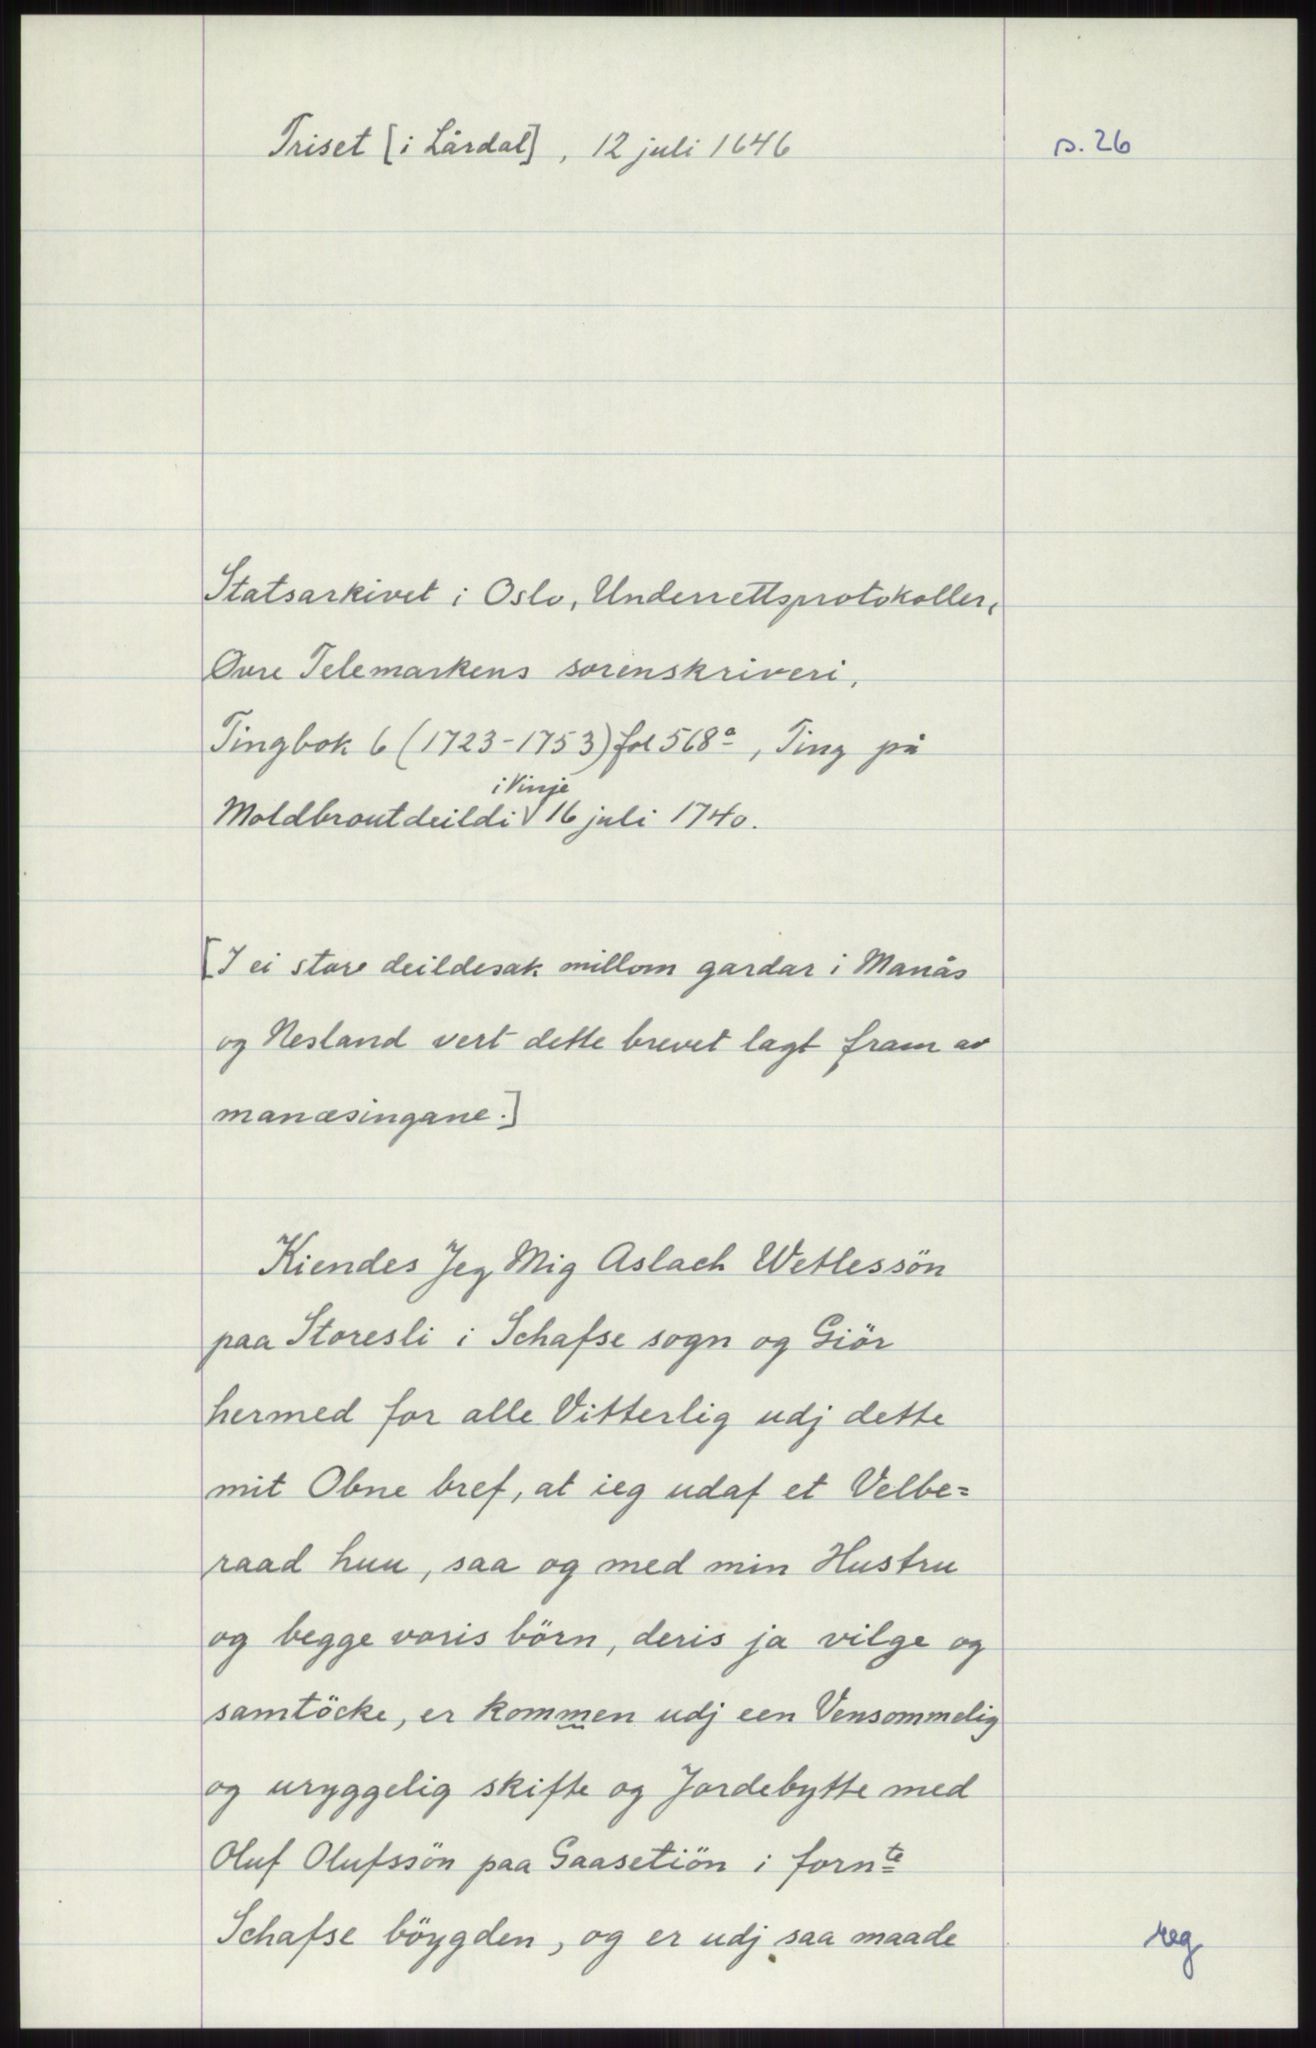 Triset [i Lårdal], 12 juli 1646
s. 26
Statsarkivet i Oslo, Underrettsprotokoller,
Øvre Telemarkens sorenskriveri,
Tingbok 6 (1723-1753) fol 568a, Ting på
i Vinje
Moldbrautdeildi V 16 juli 1740.
[I ei stor deildesak millom gardar i Manås
og Nesland vert dette brevet lagt fram av
manæsingane.]
Kiendes Jeg Mig Aslach Wetlessön
paa Storesli i Schafse sogn og Giör
hermed for alle Vitterlig udj dette
mit Obne bref, at ieg udaf et Velbe=
raad huu, saa og med min Hustru
og begge voris börn, deris ja vilge og
samtöcke, er kommen udj een Vensommelig
og uryggelig skifte og Jordebytte med
Oluf Olufssön paa Gaasetiön i fornte
Schafse böygden, og er udj saa maade
reg